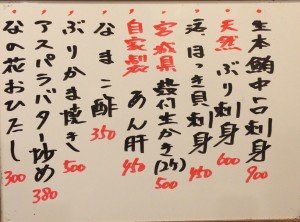 生本鮪中とろ刺身 900
天然 ぶり刺身 600
活ほっき貝刺身 450
宮城県 殻付生かき(2ケ) 500
自家製 あん肝 450
なまこ酢 350
ぶりかま焼き 500
アスパラバター炒め 380
なの花おひたし 300